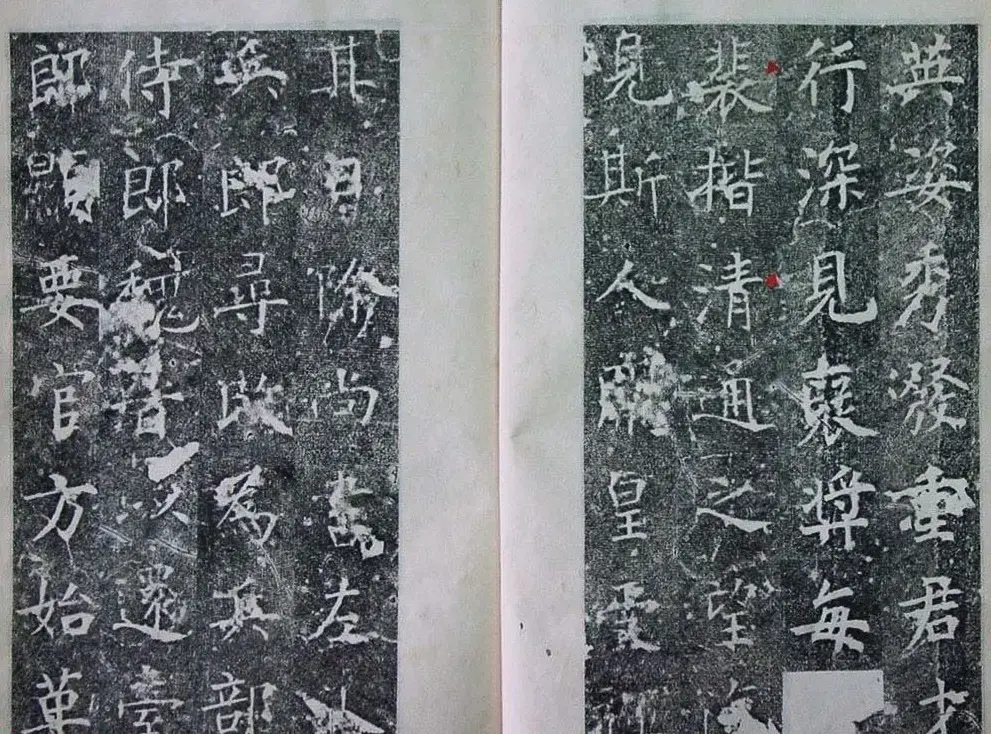 英姿秀發重君才
行深見襃奨每
裴揩清通之望
見斯人爾皇
其月除尚書左
兵郎尋改為兵部
侍郎還臺
郎顯要官方始革